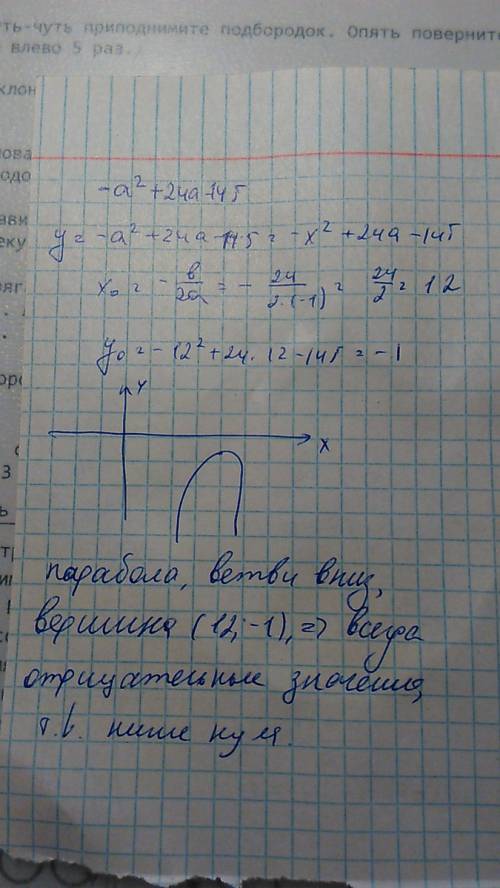 чуть-чуть приподнимите подбородок. Опять поверните
влево 5 раз.
-a² + 24a - 145
y = -a² + 24a - 145 = -x² + 24a - 145
x₀ = - b/2a = - 24/2·(-1) = 24/2 = 12
y₀ = -12² + 24 · 12 - 145 = -1
y
x
парабола, ветви вниз,
вершина (12; -1), => всегда
отрицательные значения,
т.к. ниже нуля.